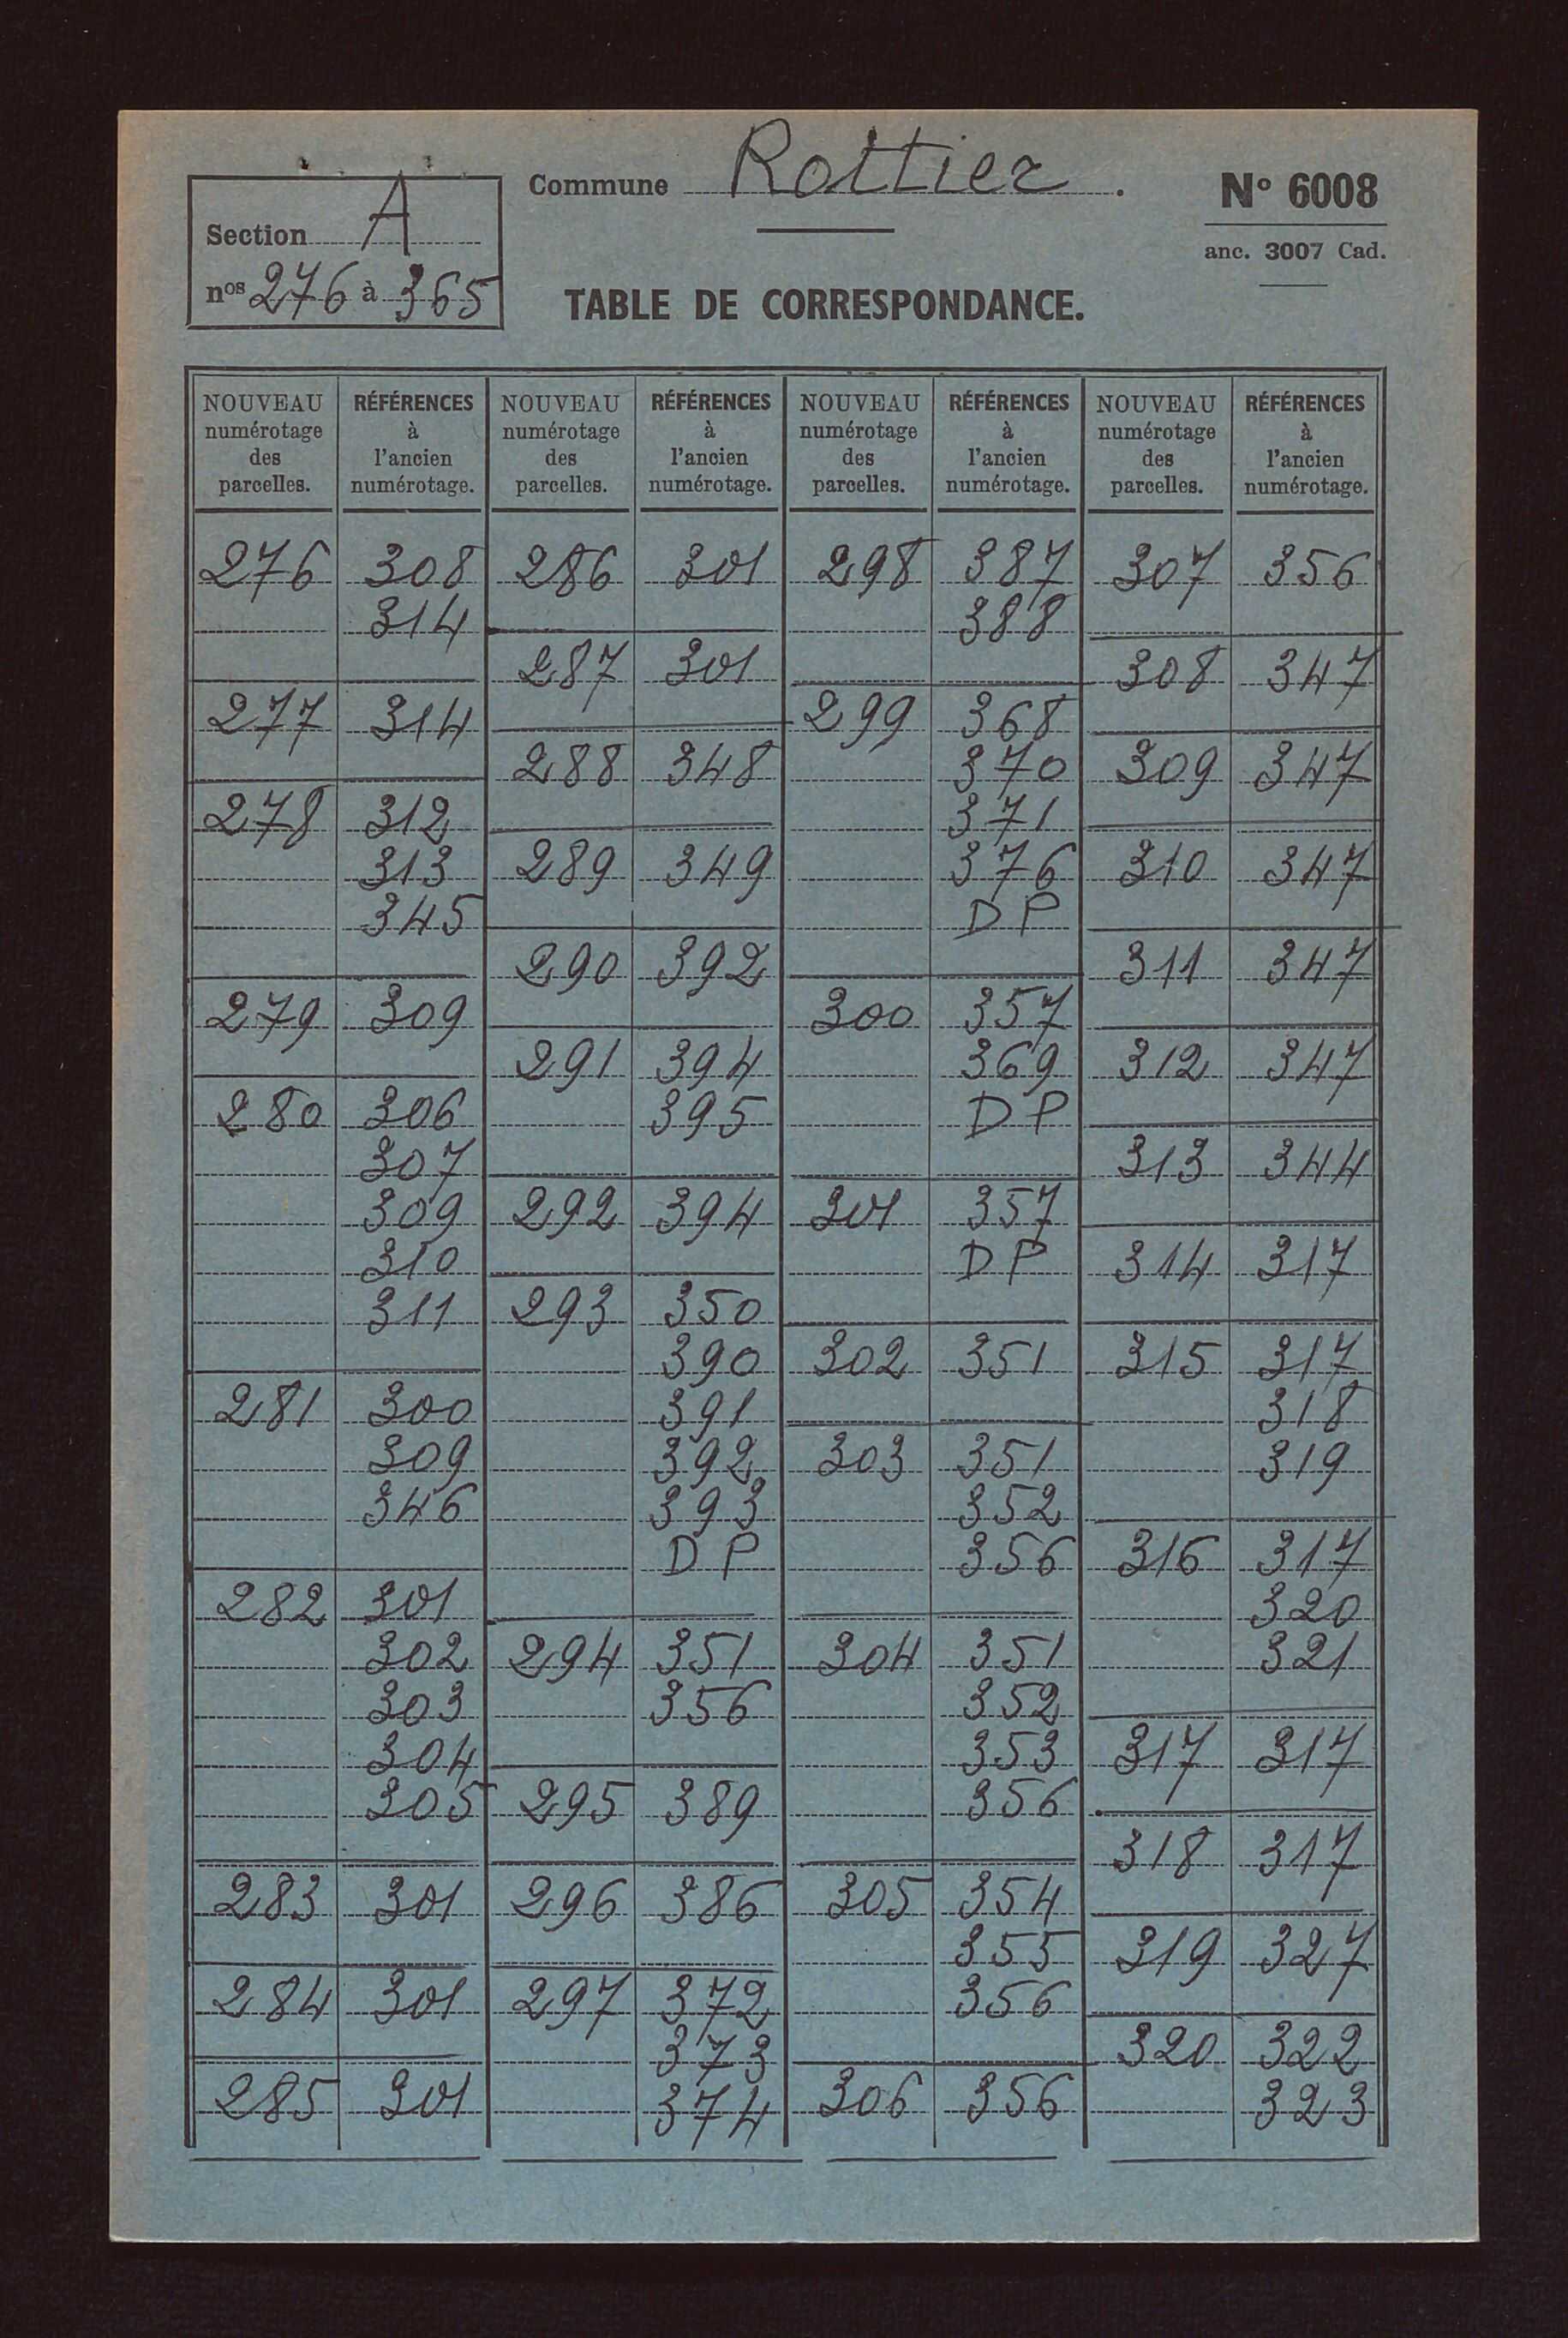 Commune Rottier.
N° 6008
anc. 3007 Cad.
Section A
nos 276 à 365
TABLE DE CORRESPONDANCE.
NOUVEAU numérotage des parcelles. | RÉFÉRENCES à l'ancien numérotage. | NOUVEAU numérotage des parcelles. | RÉFÉRENCES à l'ancien numérotage. | NOUVEAU numérotage des parcelles. | RÉFÉRENCES à l'ancien numérotage. | NOUVEAU numérotage des parcelles. | RÉFÉRENCES à l'ancien numérotage.
276 308 286 301 298 387 307 356
314 388
287 301 308 347
277 314 299 368
288 348 370 309 347
278 312 371
313 289 349 376 310 347
345 D P
290 392 311 347
279 309 300 357
291 394 369 312 347
280 306 395 D P
307 313 344
309 292 394 301 357
310 D P 314 317
311 293 350
390 302 351 315 317
281 300 391 318
309 392 303 351 319
346 393 352
D P 356 316 317
282 301 320
302 294 351 304 351 321
303 356 352
304 353 317 317
305 295 389 356
318 317
283 301 296 386 305 354
355 319 327
284 301 297 372 356
373 320 322
285 301 374 306 356 323